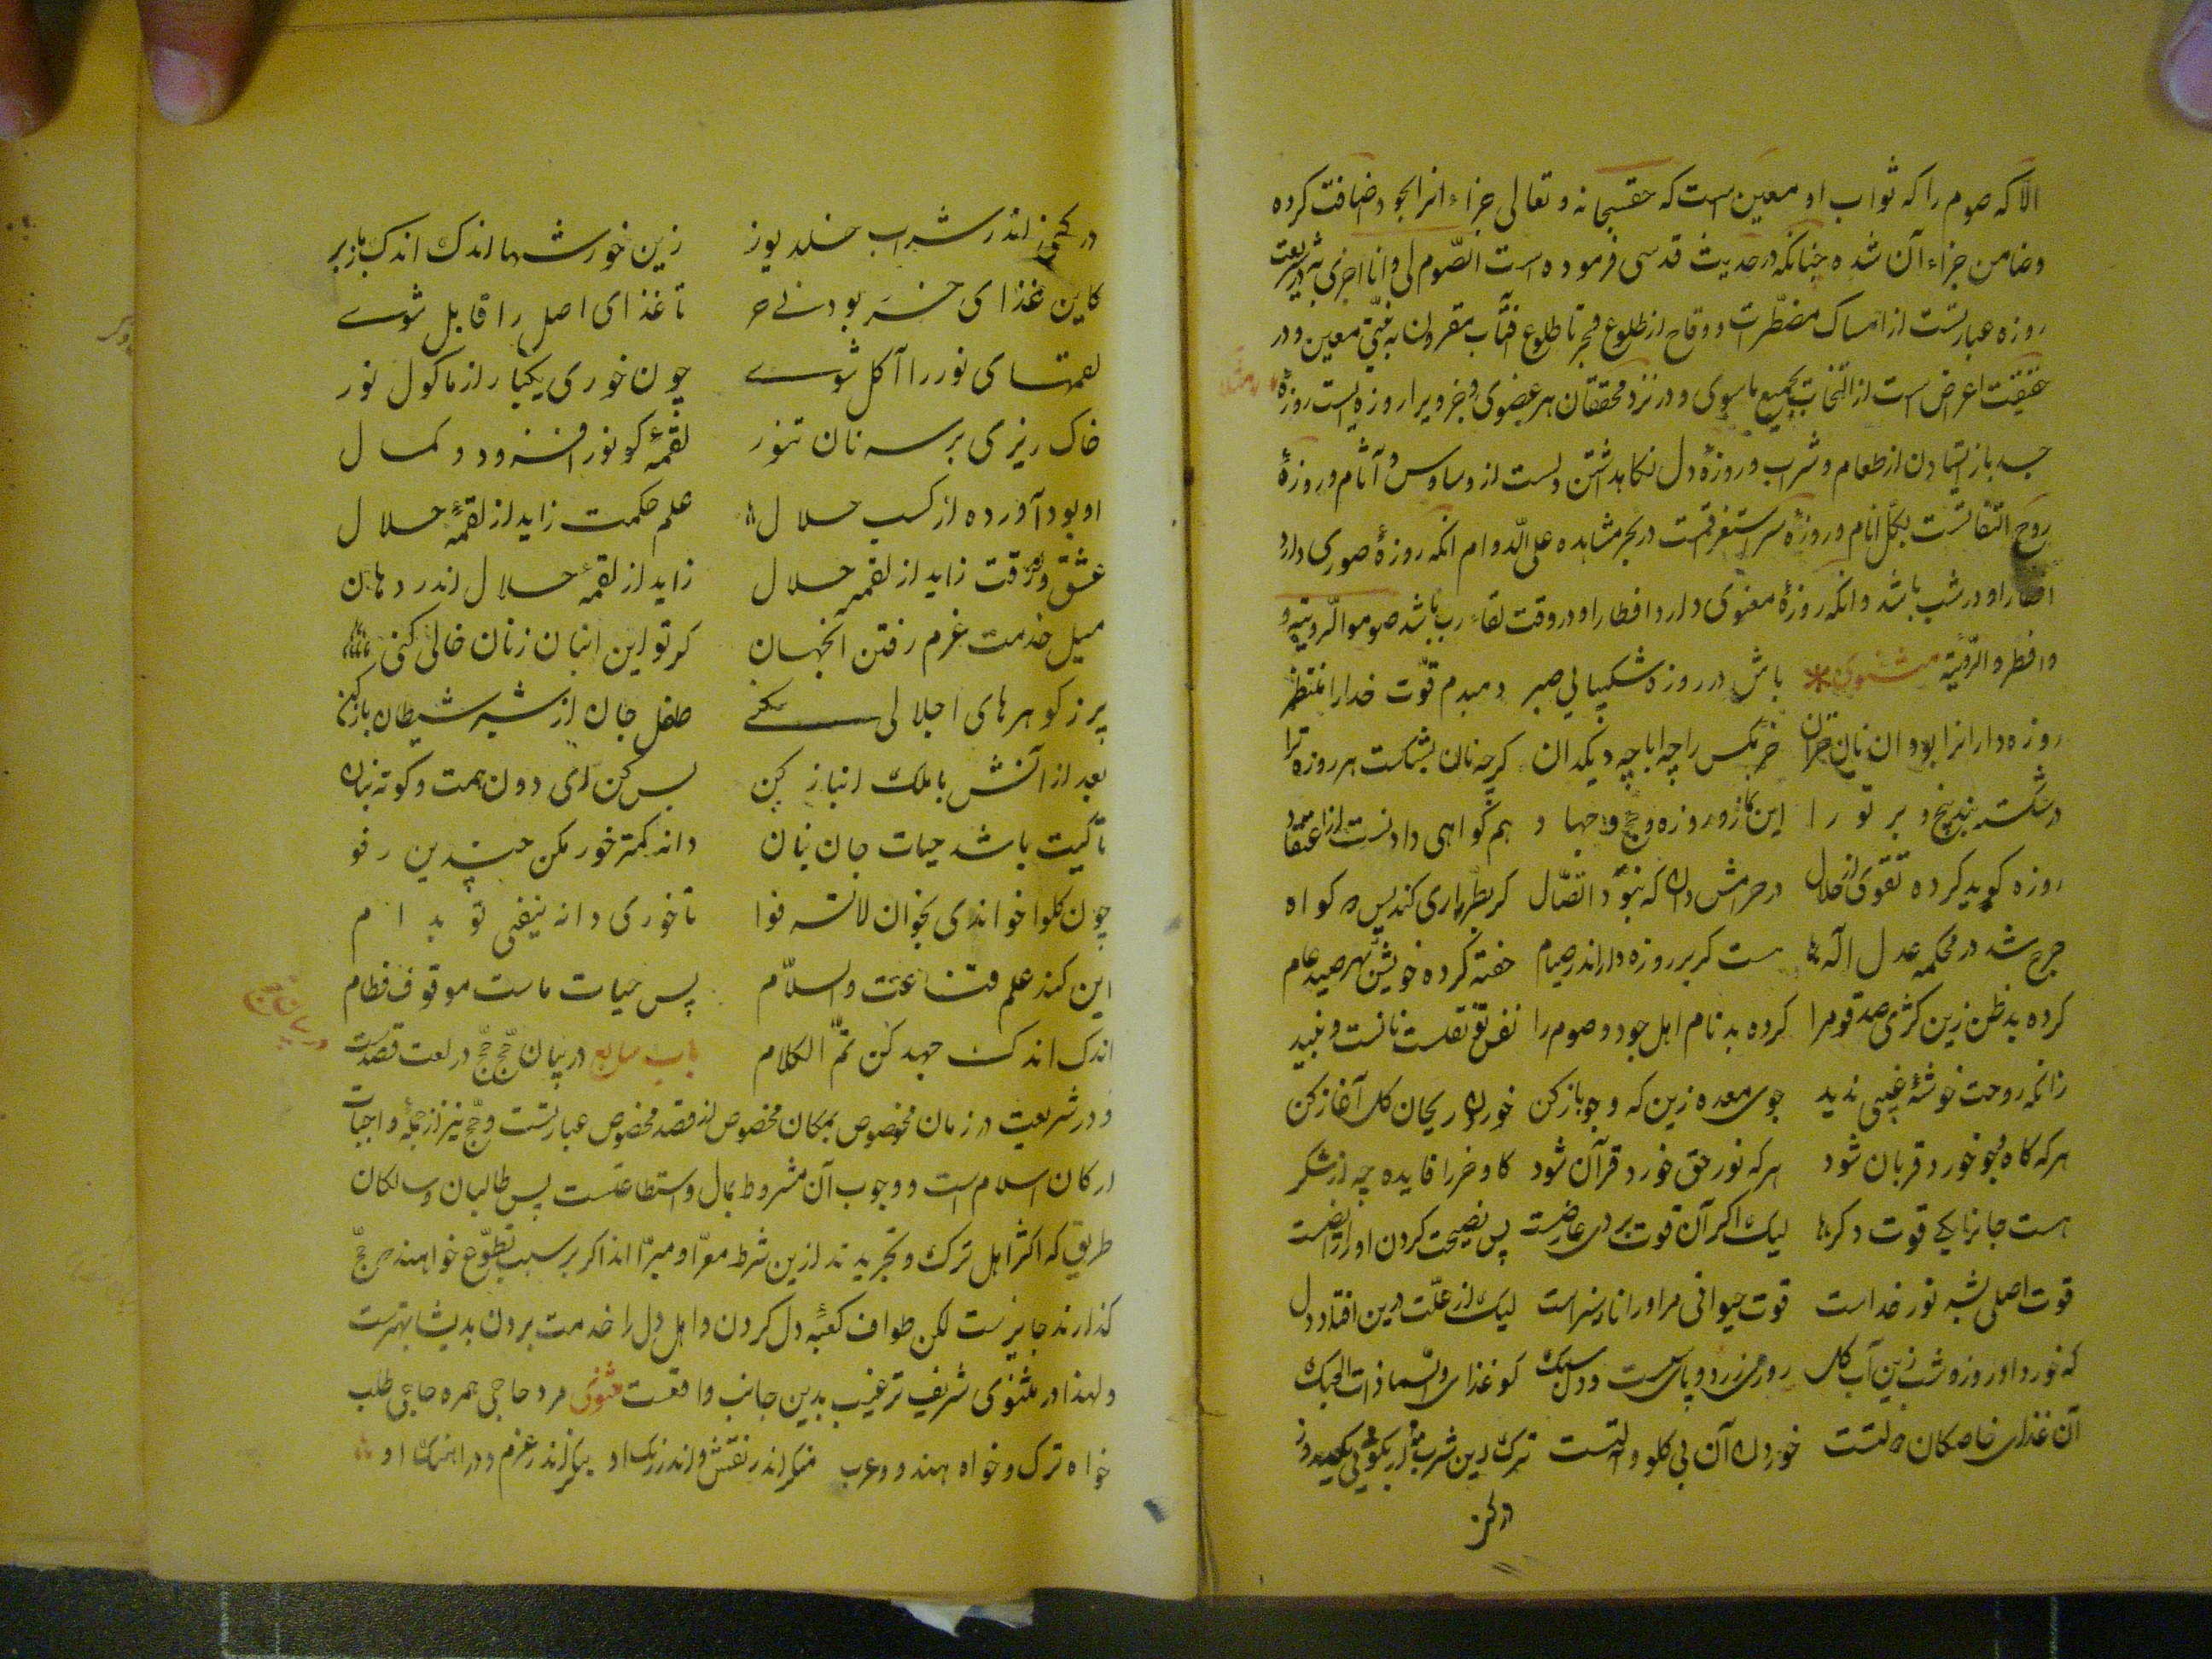 الا که صوم را که ثواب او معین است که حقسبحانه و تعالی جزاء انرا بخود اضافت کرده
وضامن جزاء آن شده چنانکه در حدیث قدسی فرموده است الصّوم لی وانا اجزی به در شریعت
روزه عبارتست از امساک مفطّرات و وقاع از طلوع فجر تا طلوع آفتاب مقرون به نیّتی معین و در
حقیقت اعراض است از التفات بجمیع ماسوی و در نزد محققان هر عضوی و جزویرا روزه ایست روزهٔ
جسد باز ایستادن از طعام و شراب و روزهٔ دل نکاهداشتن ولست از وساوس و آثام و روزهٔ
روح التفاتست بکلّ انام و روزهٔ سر استغراقست در بحر مشاهده علی الّدوام انکه روزهٔ صوری دارد
افطار او در شب باشد وانکه روزهٔ معنوی دارد افطار او در وقت لقاء رب باشد صوموا الّرویته و
وافطروا الّرؤیته مثنوی باش در روزه شکیبایی صبر دمبدم قوّت خدا را منتظر
روزه دار انرا بود ان نان خوان خرمکس را چه ابا چه دیکدان کرچه نان بشکست هر روزه ترا
در شکسته بند پنچ و بر تو را این نماز و روزه و حجّ و جهاد هم کواهی دادنست از اعتقاد
روزه کوید کرده تقوی از حلال در حرامش دان که نبود اتّصال کر بطرّاری کند پس دو کواه
جرح شد در محکمه عدل اله هست کربه روزه دار اندر صیام خفته کرده خویش بهر صید عام
کرده بدظن زین کژی صد قوم را کرده بدنام اهل جود و صوم را نفس تو تا مست نانست و نبید
زانکه روحت خوشهٔ غیبی ندید جوی معده زین که و جو بازکن خوردن ریحان کل آغاز کن
هر که کاه وجو خورد قربان شود هر که نور حق خورد قرآن شود کاو خر را فایده چه از شکر
هست جانرا یکی قوت دکرها لیک اکر آن قوت بروی عارضست پس نصیحت کردن او رایضست
قوت اصلی بشر نور خداست قوت حیوانی مر او را ناسزاست لیک از علّت درین افتاد دل
که خورد او روز و شب زین آب کل روی زرد و پای سست و دل سبک کو غذای والسّما ذات الحبک
آن غذای خاصکان دولتست خوردن آن بی کلو و آلتست ترک این شرب
در کز
در کوز اندر شراب خلد پوز زین خورشها اندک اندک باز بر
کاین غذای خر بود نی حر تا غذای اصل را قابل شوی
لقمهای نور را آکل شوی چون خوری یکبار از ماکول نور
خاک ریزی بر سر نان تنور لقمهٔ کو نور افزود و کمال
او بود آورده از کسب حلال علم حکمت زاید از لقمهٔ حلال
عشق و رقت زاید از لقمه حلال زاید از لقمهٔ حلال اندر دهان
میل خدمت عزم رفتن آنجهان کر تو این انبان زنان خالی کنی
پر ز کوهرهای اجلالی کنی طفل جان از شیر شیطان باز کن
بعد از آتنش با ملک انباز کن بس کن ای دون همت و کوته زبان
تا کیت باشد حیات جان بنان دانه کمتر خور مکن چندین رفو
چون کلوا خواندی بخوان لا تسرفوا تا خوری دانه نیفتی تو بدام
این کند علم و قناعت والسلاّم پس حیات ماست موقوف فطام
اندک اندک جهد کن تمّ الکلام باب سابع در بیان حجّ حجّ در لعت قصدست
و در شریعت در زمان مخصوص بمکان مخصوص از قصد مخصوص عبارتست و حجّ نیز از جملهٔ واجبات
ارکان اسلام است و وجوب آن مشروط بمال و استطاعتست پس طالبان و سالکان
طریق که اکثر اهل ترک و تجرید ند ازین شرط معرّا و مبرّا اند اکر بر سبیل تطوّع خواهند حجّ
کذارند جایزست لکن طواف کعبٔه دل کردن و اهل دل را خدمت بردن بدیشان بهترست
ولهذا در مثنوی شریف ترغیب بدین جانب واقعست مثنوی مرد حاجی همره حاجی طلب
خواه ترک و خواه هندو و عرب منکر اندر نقش و اندر رنک او بنکر اندر عزم و در اهنک او